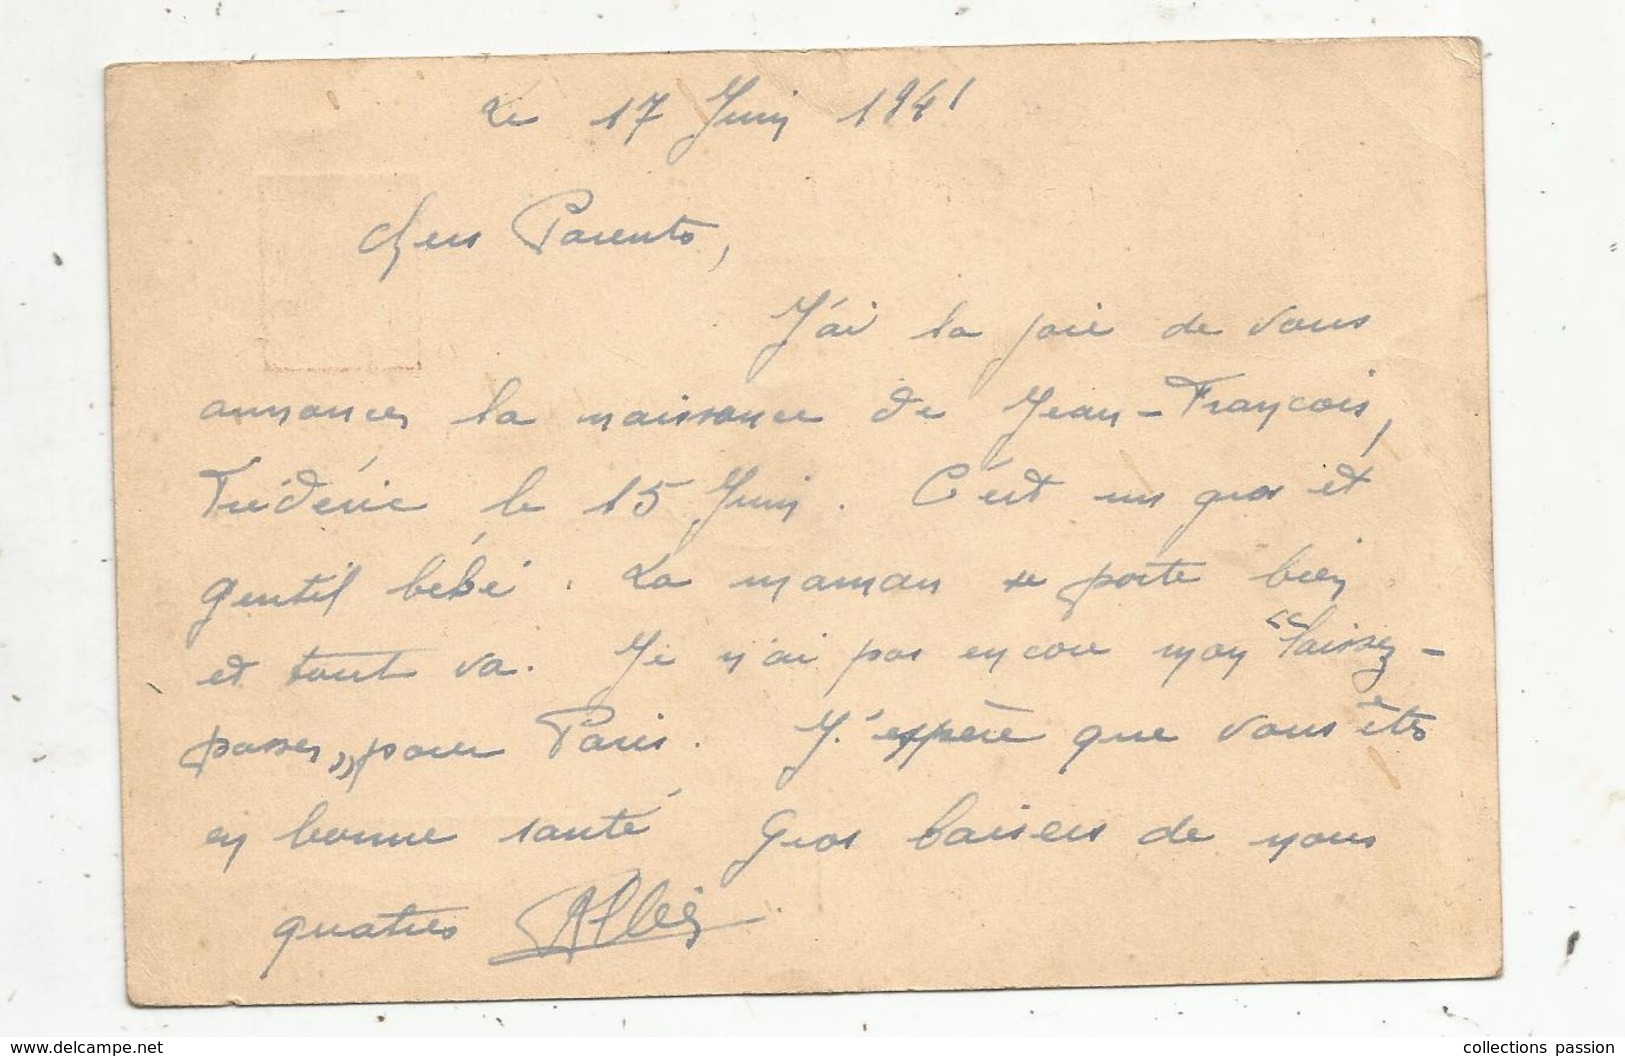 Le 17 Juin 1941
Chers Parents,
J'ai la joie de vous
annoncer la naissance de Jean-François,
Frédéric le 15 Juin. C'est un gros et
gentil bébé. La maman se porte bien
et tout va. Je n'ai pas encore mon "laissez-
passer" pour Paris. J'espère que vous êtes
en bonne santé Gros baisers de nous
quatres
www.delcampe.net
collections passion